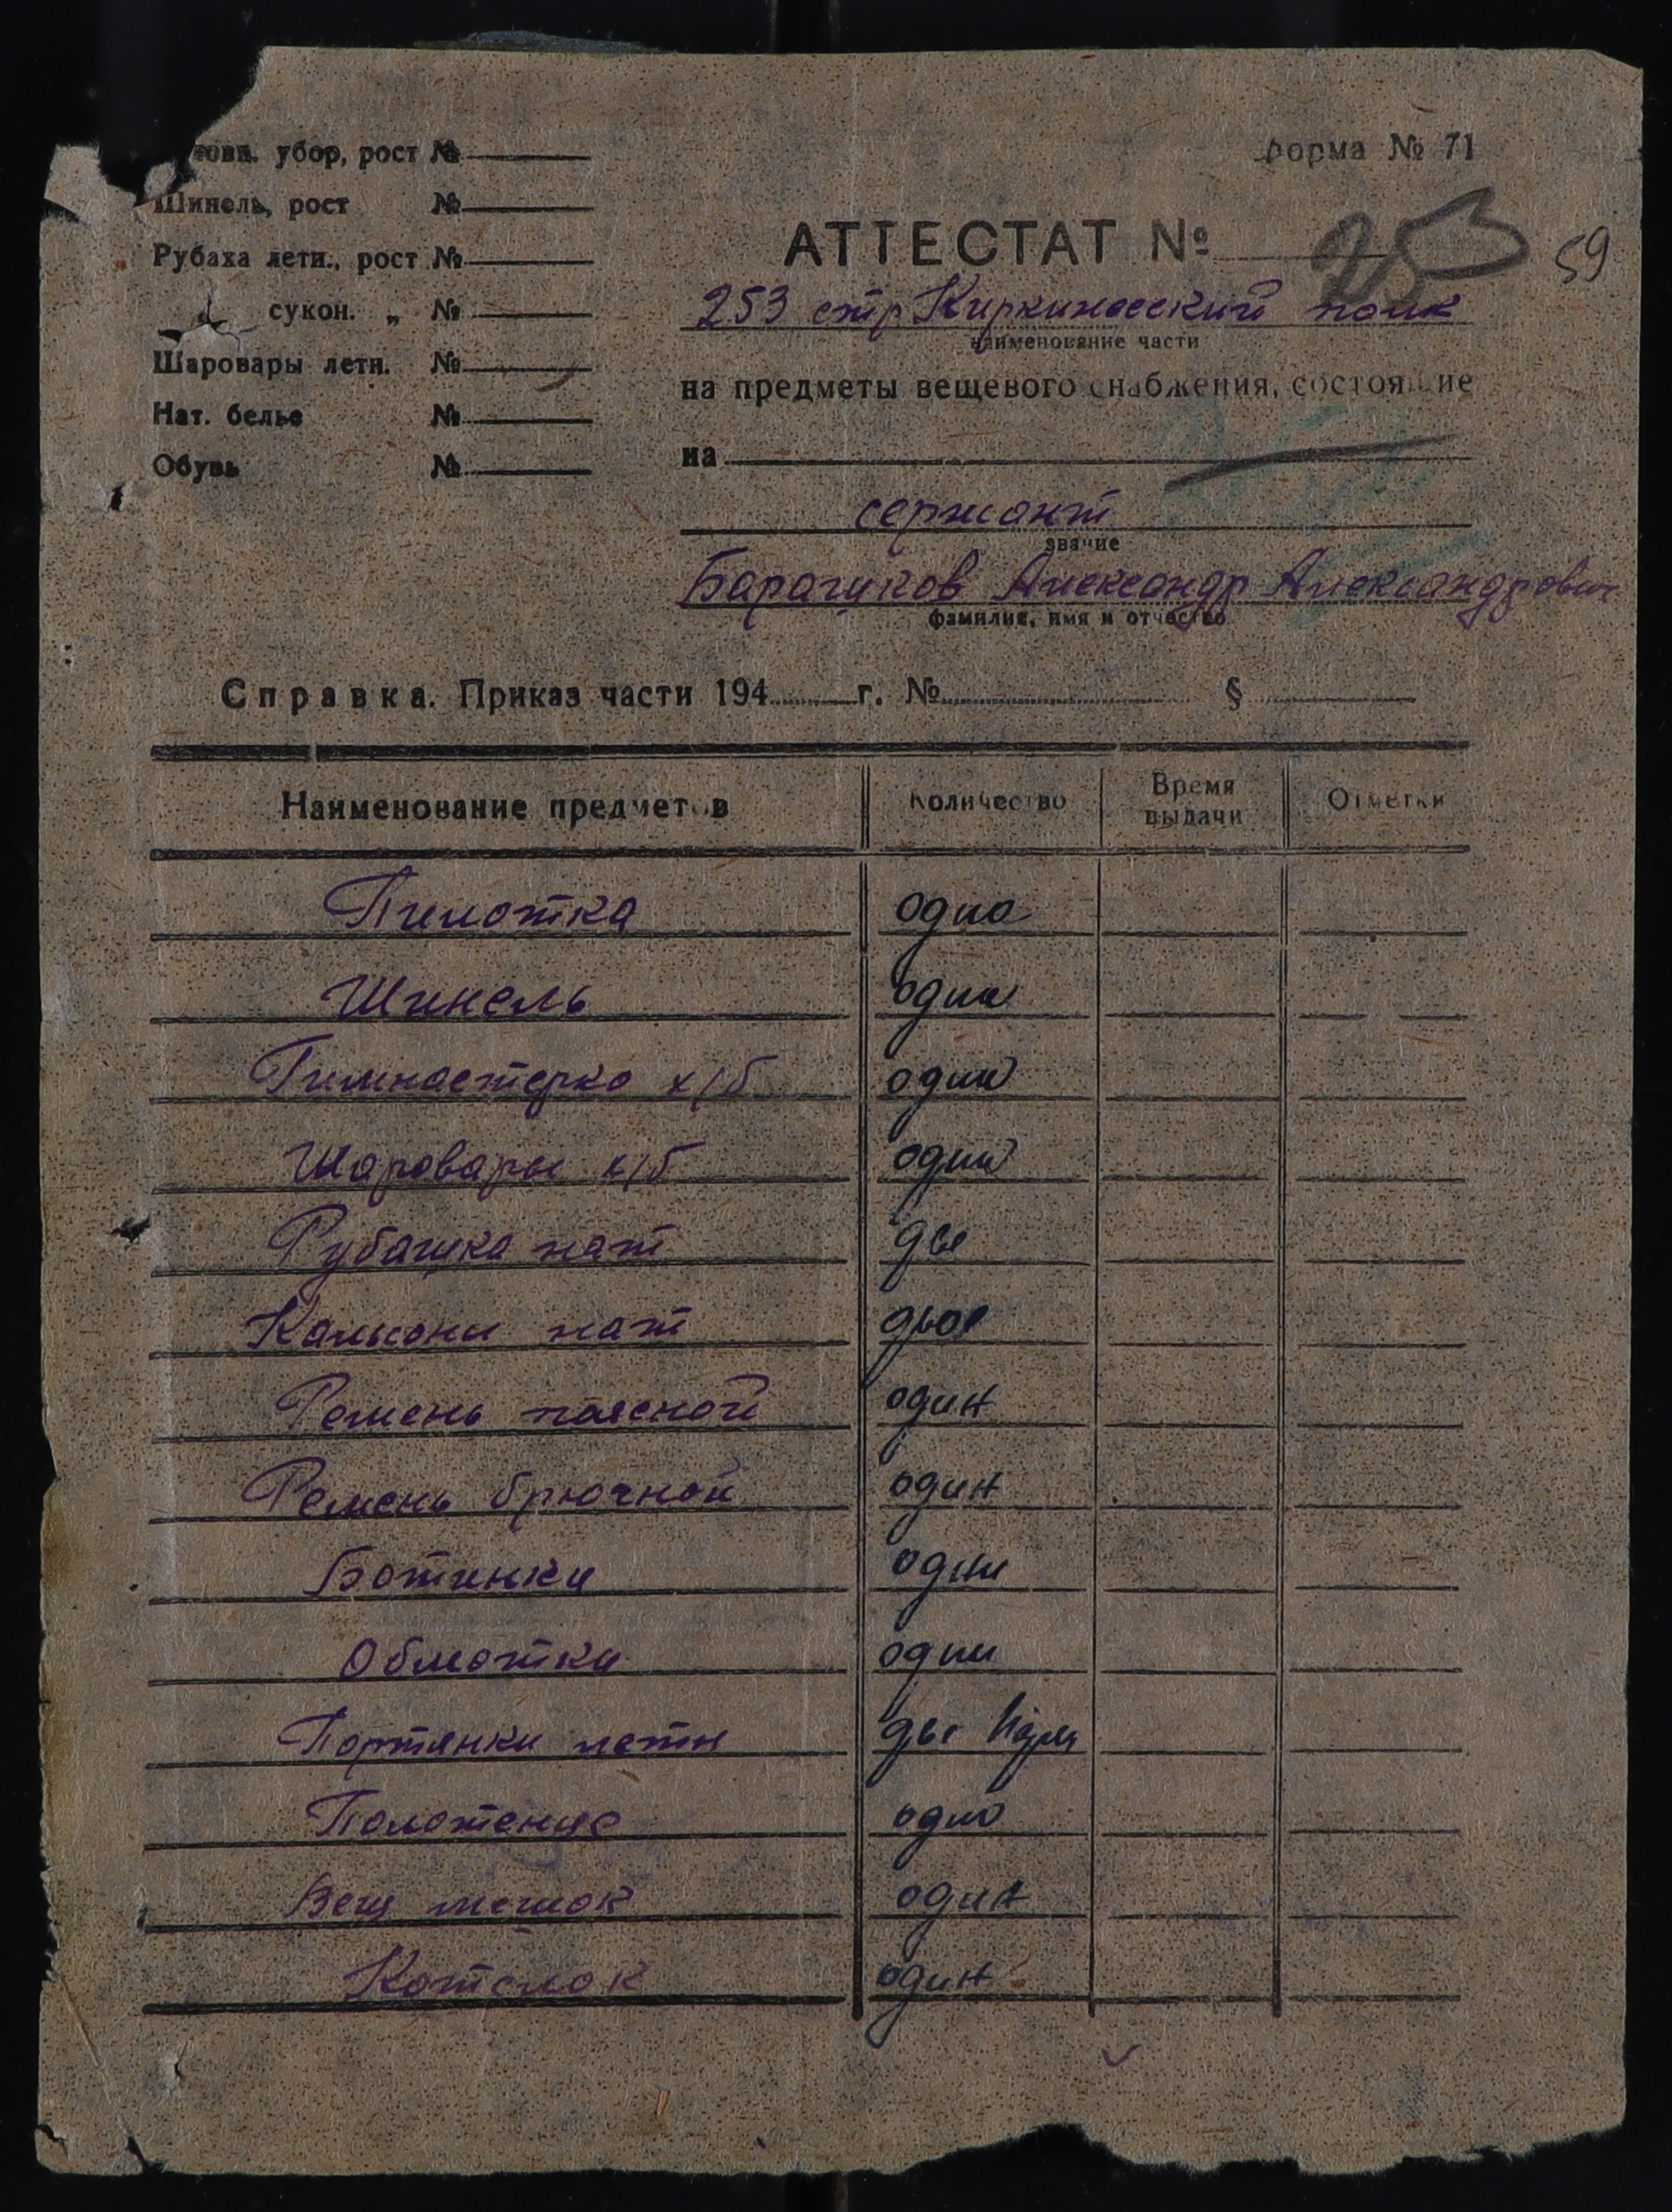 ловн. убор, рост №
Шинель, рост №
Рубаха летн., рост №
сукон. „ №
Шаровары летн. №
Нат. белье №
Обувь №
форма № 71
59
АТТЕСТАТ № 253
253 стр Киркинесский полк
наименование части
на предметы вещевого снабжения, состоящие
на
сержант
звание
Баращков Александр Александрович
фамилия, имя и отчество
Справка. Приказ части 194 г. № §
Наименование предметов Количество Время выдачи Отметки
Пилотка одна
Шинель одна
Гимнастерка х/б одна
Шаровары х/б одни
Рубашка нат две
Кальсоны нат двое
Ремень поясной один
Ремень брючной один
Ботинки одни
Обмотки одни
Портянки летн две пары
Полотенце одно
Вещ мешок один
Котелок один